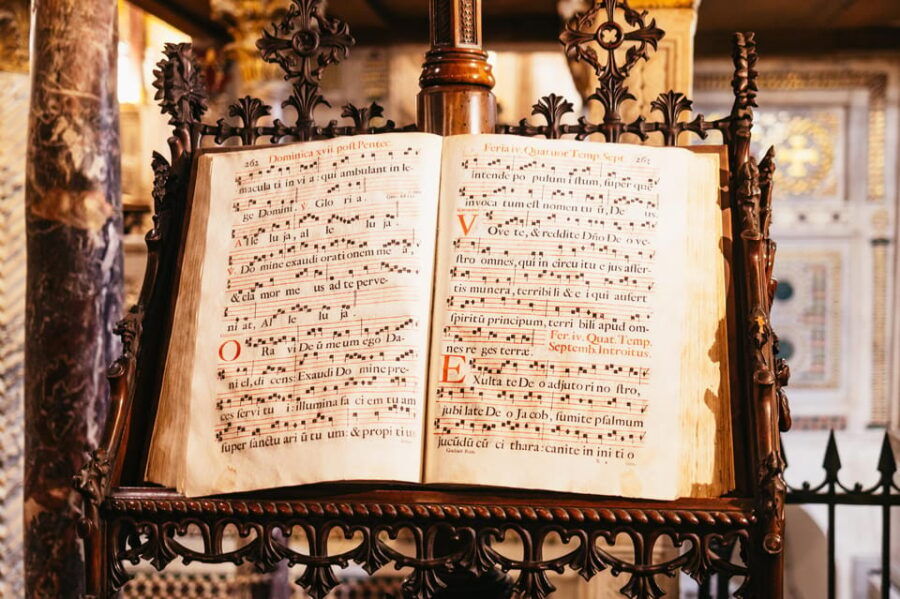 262 Dominica xvii. post Pentec
macula ti in vi a : qui ambulant in le-
ge Domini. ℣ Glo ri a.
Alle lu ja, al le lu ja.
℣. Do mine exaudi orati onem me a,
& cla mor me us ad te perve-
ni at, Al le lu ja.
O Ra vi De ũ me um ego Da-
ni el, di cens: Exaudi Do mine pre-
ces servi tu i: illumina fa ci em tu am
super sanctu ari ũ tu um: & propi tius
Feria iv. Quatuor Temp Sept
intende po pulum istum, super quē
invoca tum est nomen tu ũ, De us.
VOve te, & reddite Dño De o ve-
stro omnes, qui in circu itu e jus affer-
tis munera, terribi li & e i qui aufert
spiritũ principum, terri bili apud om-
nes re ges terræ. Fer. iv. Quat. Temp.
Septemb. Introitus.
EXulta te De o adjuto ri no stro,
jubi late De o Ja cob, sumite psalmum
jucũdũ cũ ci thara: canite in ini ti o